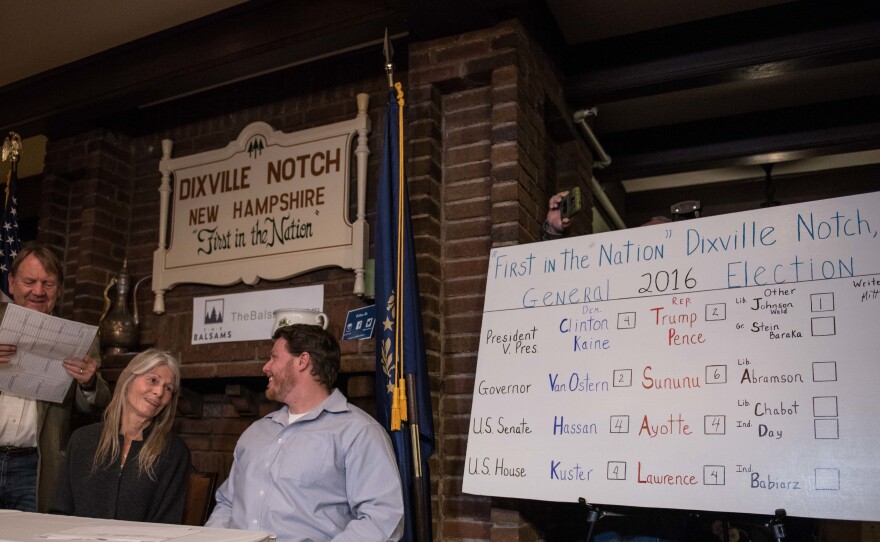 DIXVILLE NOTCH
NEW HAMPSHIRE
"First in the Nation"
THE
BALSAMS
TheBalsams
"FIRST IN THE "NATION" DIXVILLE NOTCH,
GENERAL 2016 ELECTION
Dem. Rep. Other Write
President Clinton 4 Trump 2 Lib. Johnson 1 Mitt
V. Pres. Kaine Pence Weld
Gr. Stein
Baraka
Governor Van Ostern 2 Sununu 6 Lib. Abramson
U.S. Senate Hassan 4 Ayotte 4 Lib. Chabot
Ind. Day
U.S. House Kuster 4 Lawrence 4 Ind. Babiarz